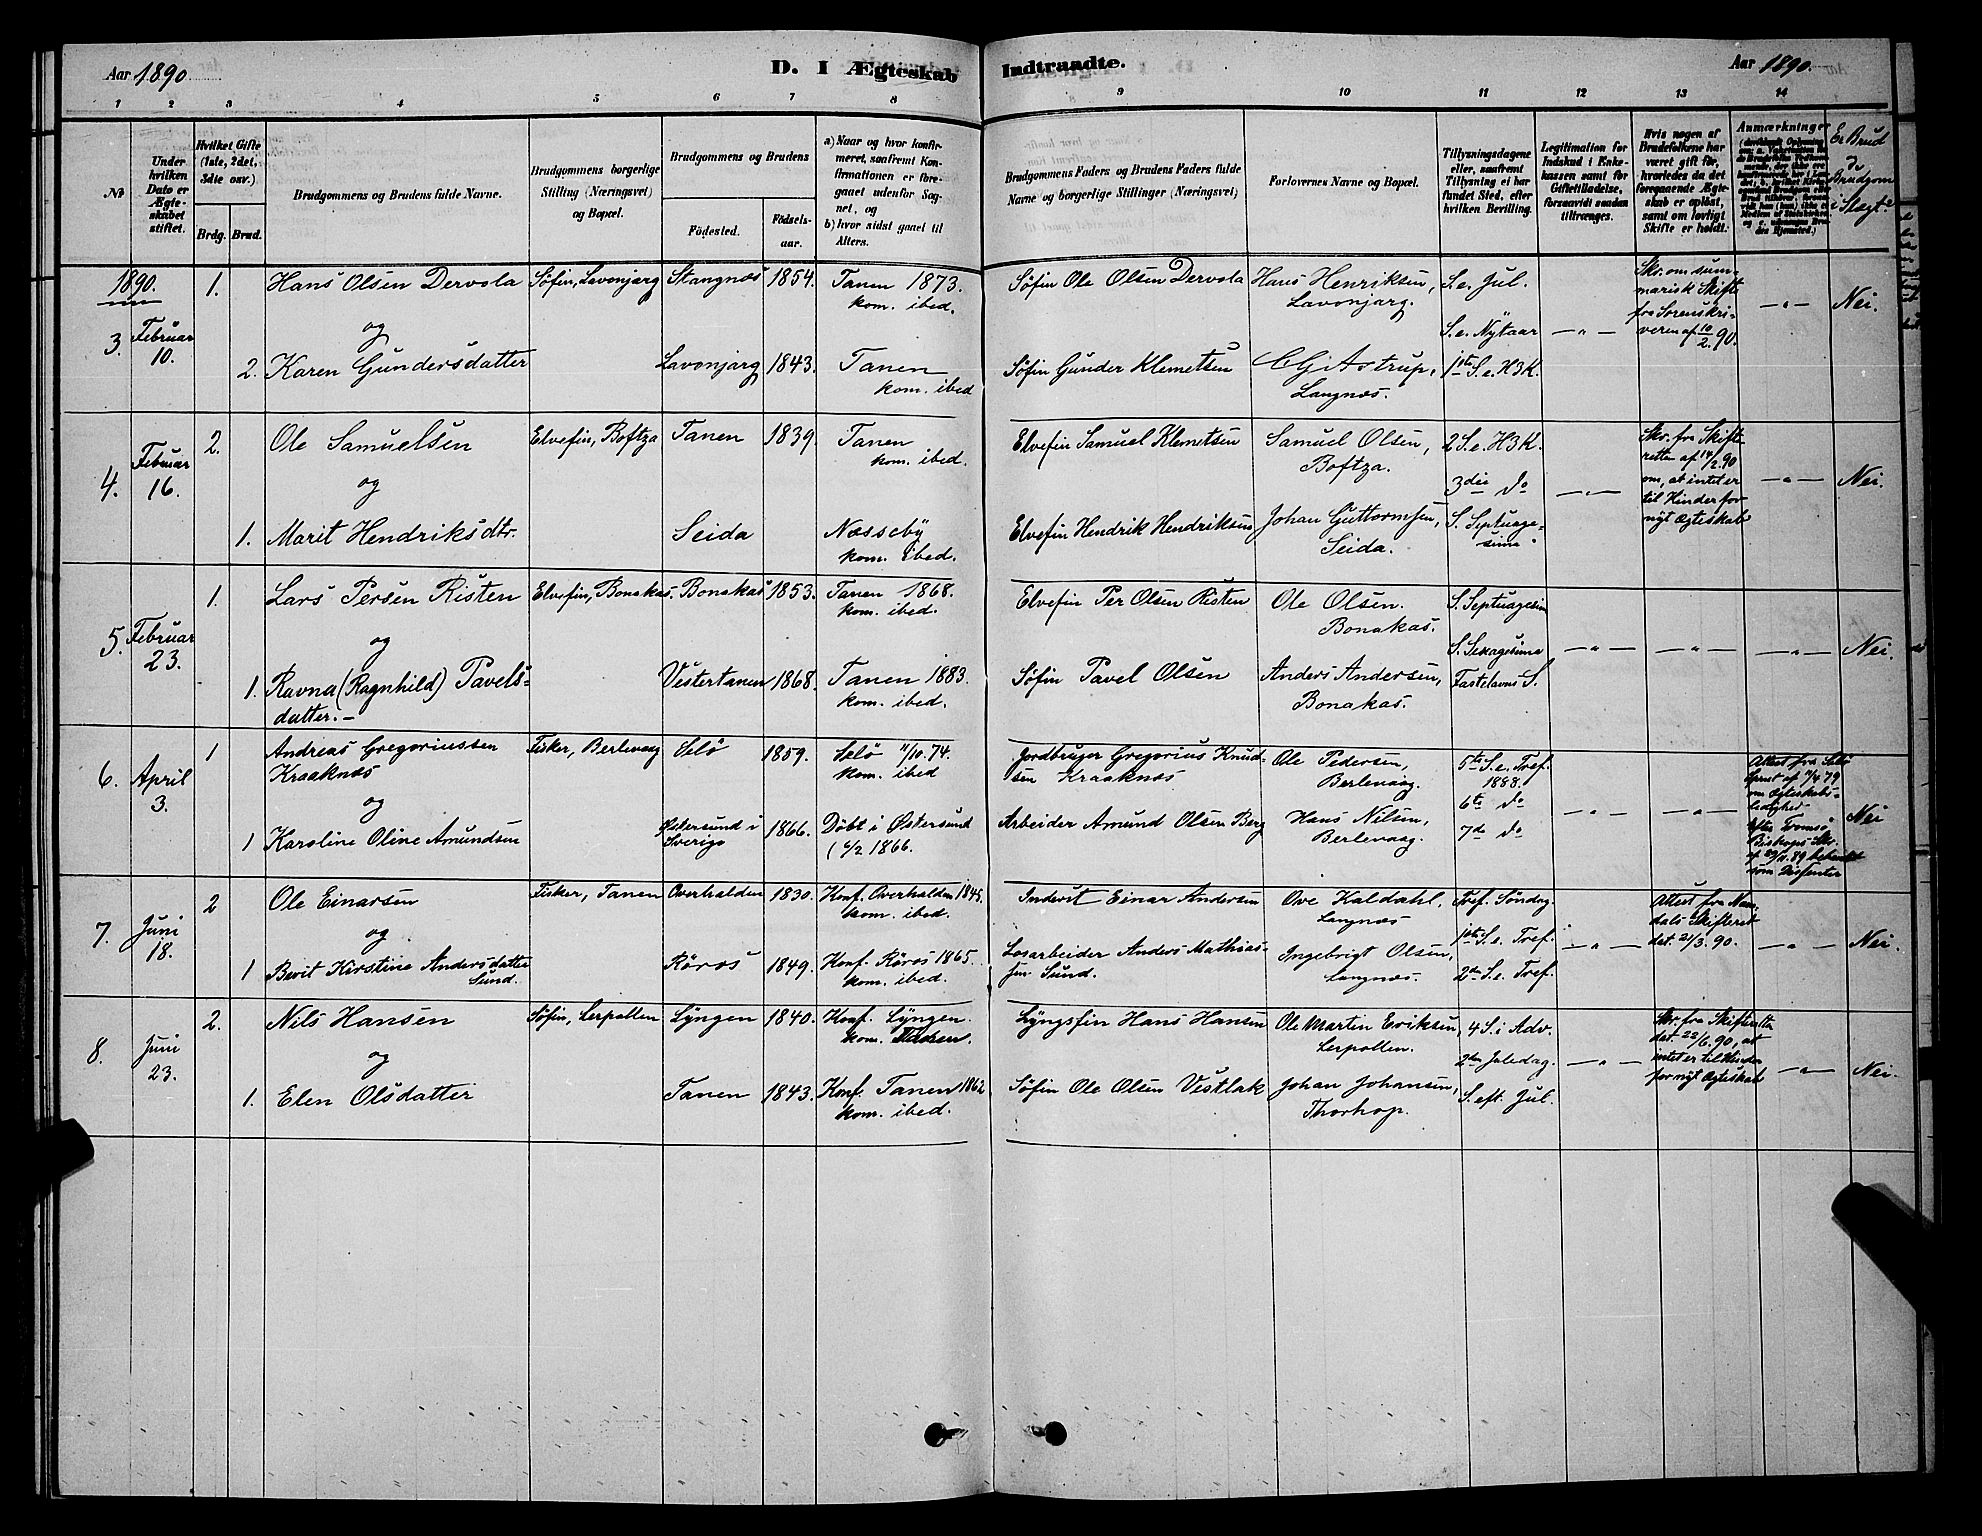 Aar 1890.
D. I Ægteskab Indtraadte.
Aar 1890.
1 2 3 4 5 6 7 8 9 10 11 12 13 14
No
Under hvilken Dato er Ægteskabet stiftet.
Hvilket Gifte (1ste, 2det, 3die osv.)
Brdg. Brud.
Brudgommens og Brudens fulde Navne.
Brudgommens borgerlige Stilling (Næringsvei) og Bopæl.
Brudgommens og Brudens
Födested.
Födselsaar.
a) Naar og hvor konfirmeret, saafremt Konfirmationen er foregaaet udenfor Sognet, og
b) hvor sidst gaaet til Alters.
Brudgommens Faders og Brudens Faders fulde Navne og borgerlige Stillinger (Næringsvei)
Forlovernes Navne og Bopæl.
Tillysningsdagene eller, saafremt Tillysning ei har fundet Sted, efter hvilken Bevilling.
Legitimation for Indskud i Enkekassen samt for Giftetilladelse, forsaavidt saadan tiltrænges.
Hvis nogen af Brudefolkene har været gift för, hvorledes da det foregaaende Ægteskab er oplöst, samt om lovligt Skifte er holdt.
Anmærkninger
Er Brud & Brudgom i Slægt?
1890.
3. Februar 10.
1. Hans Olsen Dervola
Søfin, Lavonjarg
Stangnæs 1854.
Tanen 1873. kom. ibed.
Søfin Ole Olsen Dervola
Hans Henriksen, Lavonjarg.
S. e. Jul.
S. e. Nytaar
Skr. om summarisk Skifte fra Sorenskriveren af 10/2 90.
Nei.
og
2. Karen Gundersdatter
Lavonjarg 1843.
Tanen kom. ibed
Søfin Gunder Klemetsen
C Gj Astrup, Langnæs.
1ste S. e. H3K.
4. Februar 16.
2. Ole Samuelsen
Elvefin, Boftza
Tanen 1839.
Tanen kom. ibed.
Elvefin Samuel Klemetsen
Samuel Olsen, Boftza.
2 S. e. H3K.
3die do
Skr. fra Skifteretten af 14/2 90 om, at intet er til Hinder for nyt Ægteskab
Nei.
og
1. Marit Hendriksdtr.
Seida
Næsseby kom. ibed.
Elvefin Hendrik Hendriksen
Johan Guttormsen, Seida.
S. Septuagesima
5. Februar 23.
1. Lars Persen Risten
Elvefin, Bonakas.
Bonakas 1853.
Tanen 1868. kom. ibed.
Elvefin Per Olsen Risten
Ole Olsen. Bonakas.
S. Septuagesim
S. Sexagesima
Nei.
og
1. Ravna (Ragnhild) Pavelsdatter.—
Vestertanen 1868.
Tanen 1883. kom. ibed.
Søfin Pavel Olsen
Anders Andersen, Bonakas.
Fastelavns S.
6. April 3.
1 Andreas Gregoriussen Kraaknæs
Fisker, Berlevaag
Selö 1859.
Selö 11/10.74. kom. ibed
Jordbruger Gregorius Knudsen Kraaknæs
Ole Pedersen, Berlevaag.
5te S. e. Tref. 1888.
6te do
Attest fra Selö
om Ægteskabsledighed
efter Tromsö Biskops Skr.
som Dissenter
Nei
og
1 Karoline Oline Amundsen
Østersund i Sverige 1866.
Döbt i Østersund
Arbeider Amund Olsen Berg
Hans Nilsen, Berlevaag.
7de do
7. Juni 18.
2 Ole Einarsen
Fisker, Tanen
Overhalden 1830.
Konf. Overhalden 1845. kom. ibed.
Inderst Einar Andersen
Ove Kaldahl, Langnæs
Tref. Söndag.
1ste S. e. Tref.
Attest fra Namdals Skifteret dat. 21/3. 90.
Nei.
og
1 Berit Kirstine Andersdatter Sund.
Röros 1849.
Konf. Röros 1865. kom. ibed.
Losarbeider Anders Mathiassen Sund.
Ingebrigt Olsen, Langnæs.
2den S. e. Tref.
8. Juni 23.
2. Nils Hansen
Søfin, Lerpollen
Lyngen 1840.
Konf. Lyngen. kom.
Lyngsfin Hans Hansen
Ole Martin Eriksen, Lerpollen.
4 S. i Adv.
2den Juledag.
Skr. fra Skifteretten dat. 22/6. 90, at intet er til Hinder for nyt Ægteskab
Nei.
og
1. Elen Olsdatter
Tanen 1843.
Konf. Tanen 1862 kom. ibed.
Søfin Ole Olsen Vestlak
Johan Johansen, Thorhop.
S. eft. Jul.